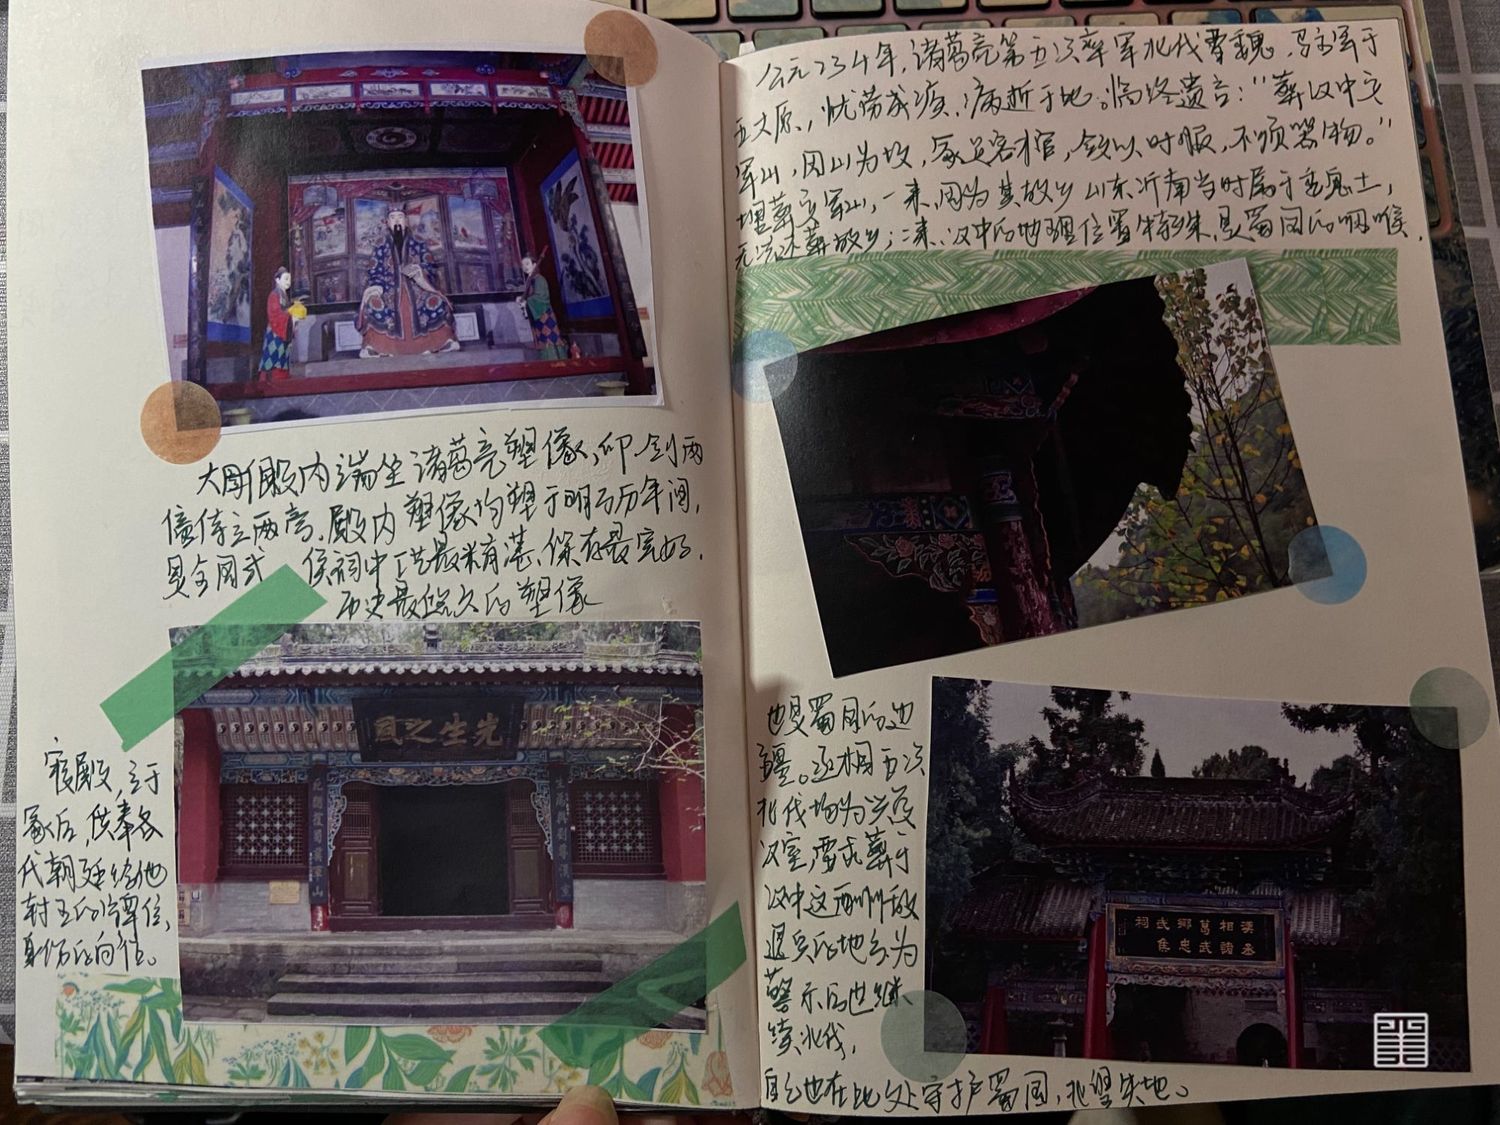 大雕殿内端坐诸葛亮塑像，印剑两
僮侍立两旁。殿内塑像均塑于明万历年间，
是全国武侯祠中工艺最精湛、保存最完好、
历史最悠久的塑像
先生之風
寝殿，立于
冢后，供奉各
代朝廷给他
封王的谭位，
身份的向往。
公元234年，诸葛亮第五次率军北伐曹魏，驻军于
五丈原，忧劳成疾，病逝于此。临终遗言：“葬汉中定
军山，因山为坟，冢足容棺，敛以时服，不须器物。”
埋葬定军山，一来，因为其故乡山东沂南当时属于
无法还葬故乡；二来，汉中的地理位置特殊，是蜀国的咽喉，
也是蜀国的边
疆。丞相五次
北伐均为兴复
汉室，要求葬于
汉中这
退兵的地方为
警示后世继
续北伐，
自己也在此处守护蜀国，北望失地。
漢相諸葛
武鄉忠武侯祠